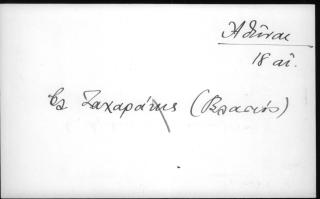 Ἀθῆναι
18 αἰ.
Ζαχαράκης (Βλασιός)